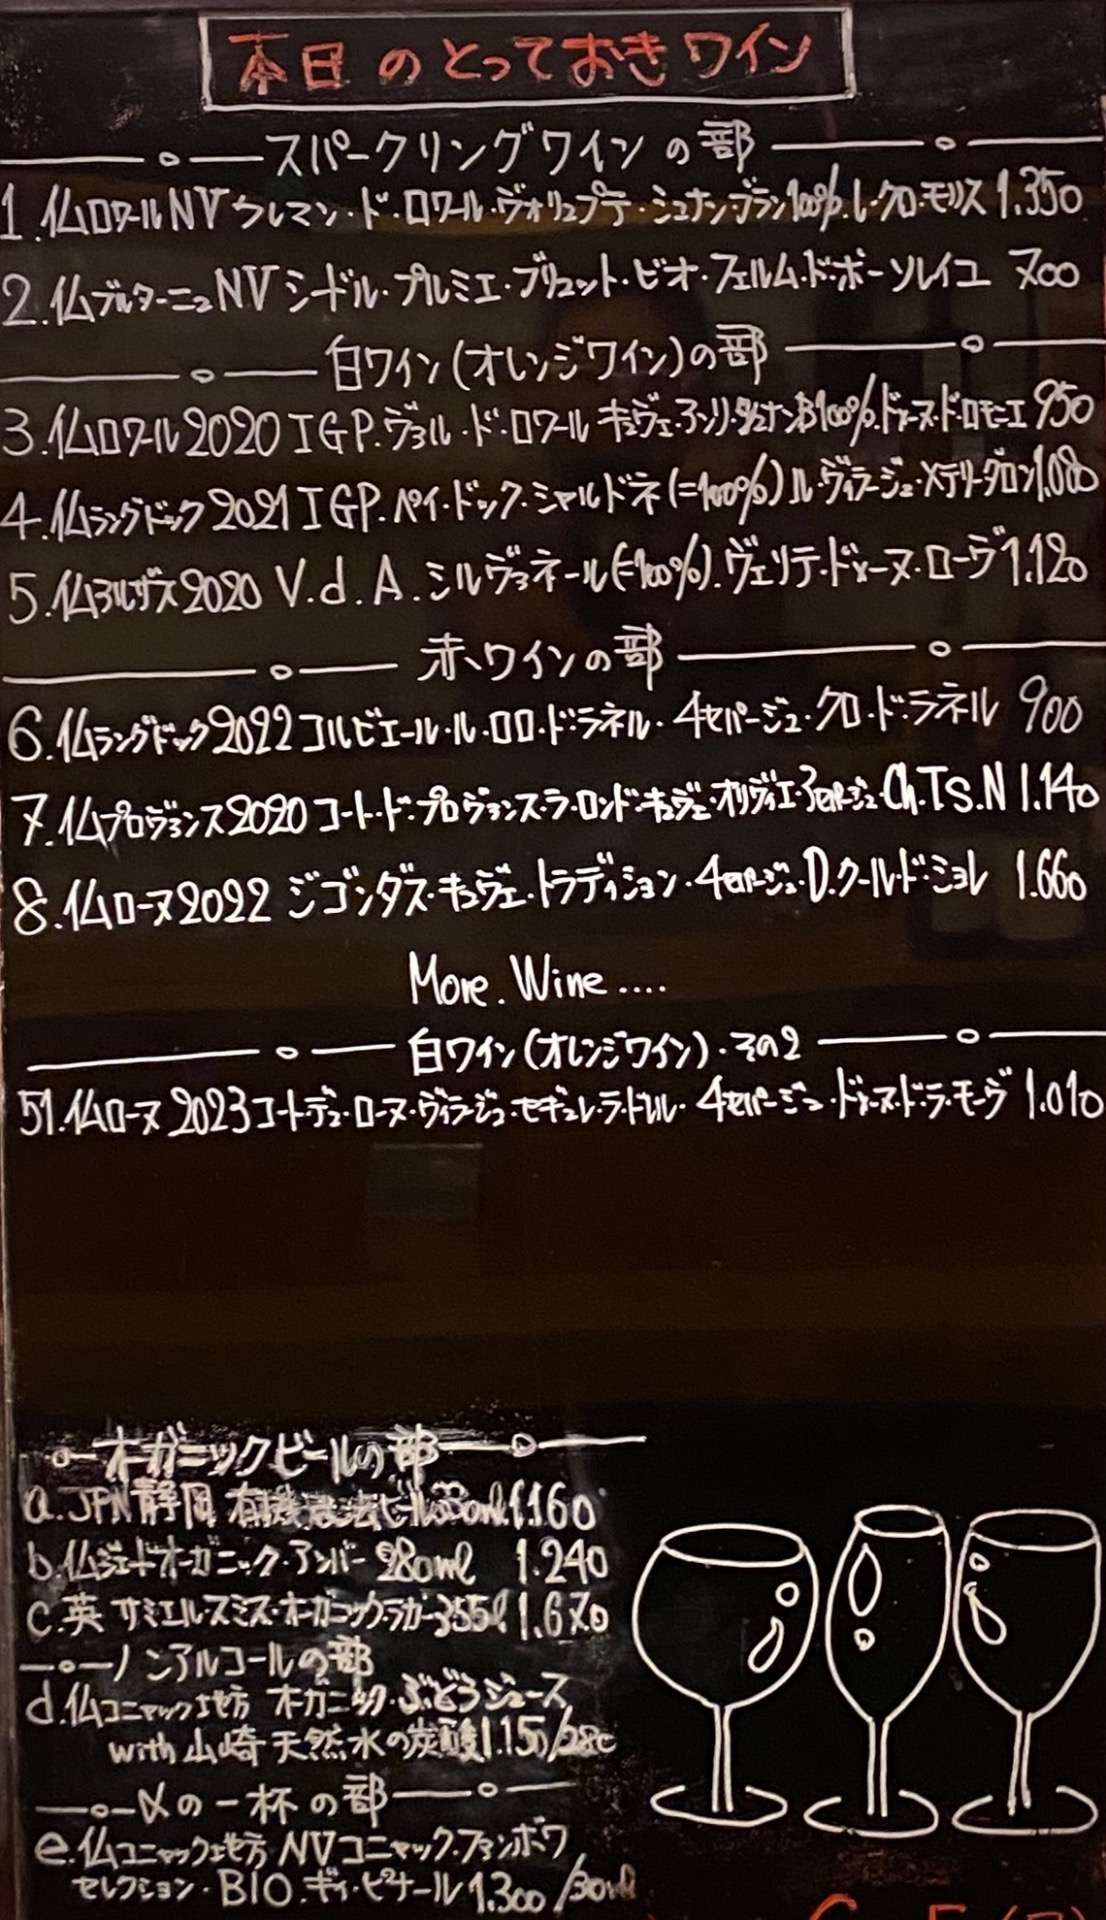 本日のとっておきワイン
スパークリングワインの部
1.仏ロワールNVクレマン・ド・ロワール・ヴォリュプテ・シュナンブラン100%.レ・クロ・モリス 1.350
2.仏ブルターニュNVシードル・プルミエ・ブリュット・ビオ・フェルム・ド・ボーソレイユ 700
白ワイン(オレンジワイン)の部
3.仏ロワール2020 IGP.ヴァル・ド・ロワール キュヴェ・アンリ 100%.ドメーヌ・ド・ロモニエ 950
4.仏ラングドック2021 IGP.ペイ・ドック・シャルドネ(=100%)ル・ヴィラージュ・メテリーダロン 1.080
5.仏アルザス2020 V.d.A.シルヴァネール(=100%).ヴェリテ・ドメーヌ・ローヴ 1.120
赤ワインの部
6.仏ラングドック2022コルビエール・ル・ロロ・ド・ラネル・4セパージュ・クロ・ド・ラネル 900
7.仏プロヴァンス2020コート・ド・プロヴァンス・ラ・ロンド・キュヴェ・オリヴィエ・3セパージュ・Ch.TS.N 1.140
8.仏ローヌ2022 ジゴンダス・キュヴェ・トラディション・4セパージュ・D.クール・ド・ミヨレ 1.660
More.Wine....
白ワイン(オレンジワイン)・その2
51.仏ローヌ2023コート・デュ・ローヌ・ヴィラージュ・セギュレ・ラ・ドレル・4セパージュ・ドメーヌ・ド・ラ・モーヴ 1.010
オーガニックビールの部
a.JPN静岡 有機農法ビール330ml 1.160
b.仏ジェードオーガニック・アンバー 280ml 1.240
c.英 サミエルスミス・オーガニックラガー355l 1.670
ノンアルコールの部
d.仏コニャック地方 オーガニック・ぶどうジュース
with 山崎天然水の炭酸1.150/28c
〆の一杯の部
e.仏コニャック地方 NVコニャック・ファンボワ
セレクション・BIO.ギィ・ピナール1.300/30ml